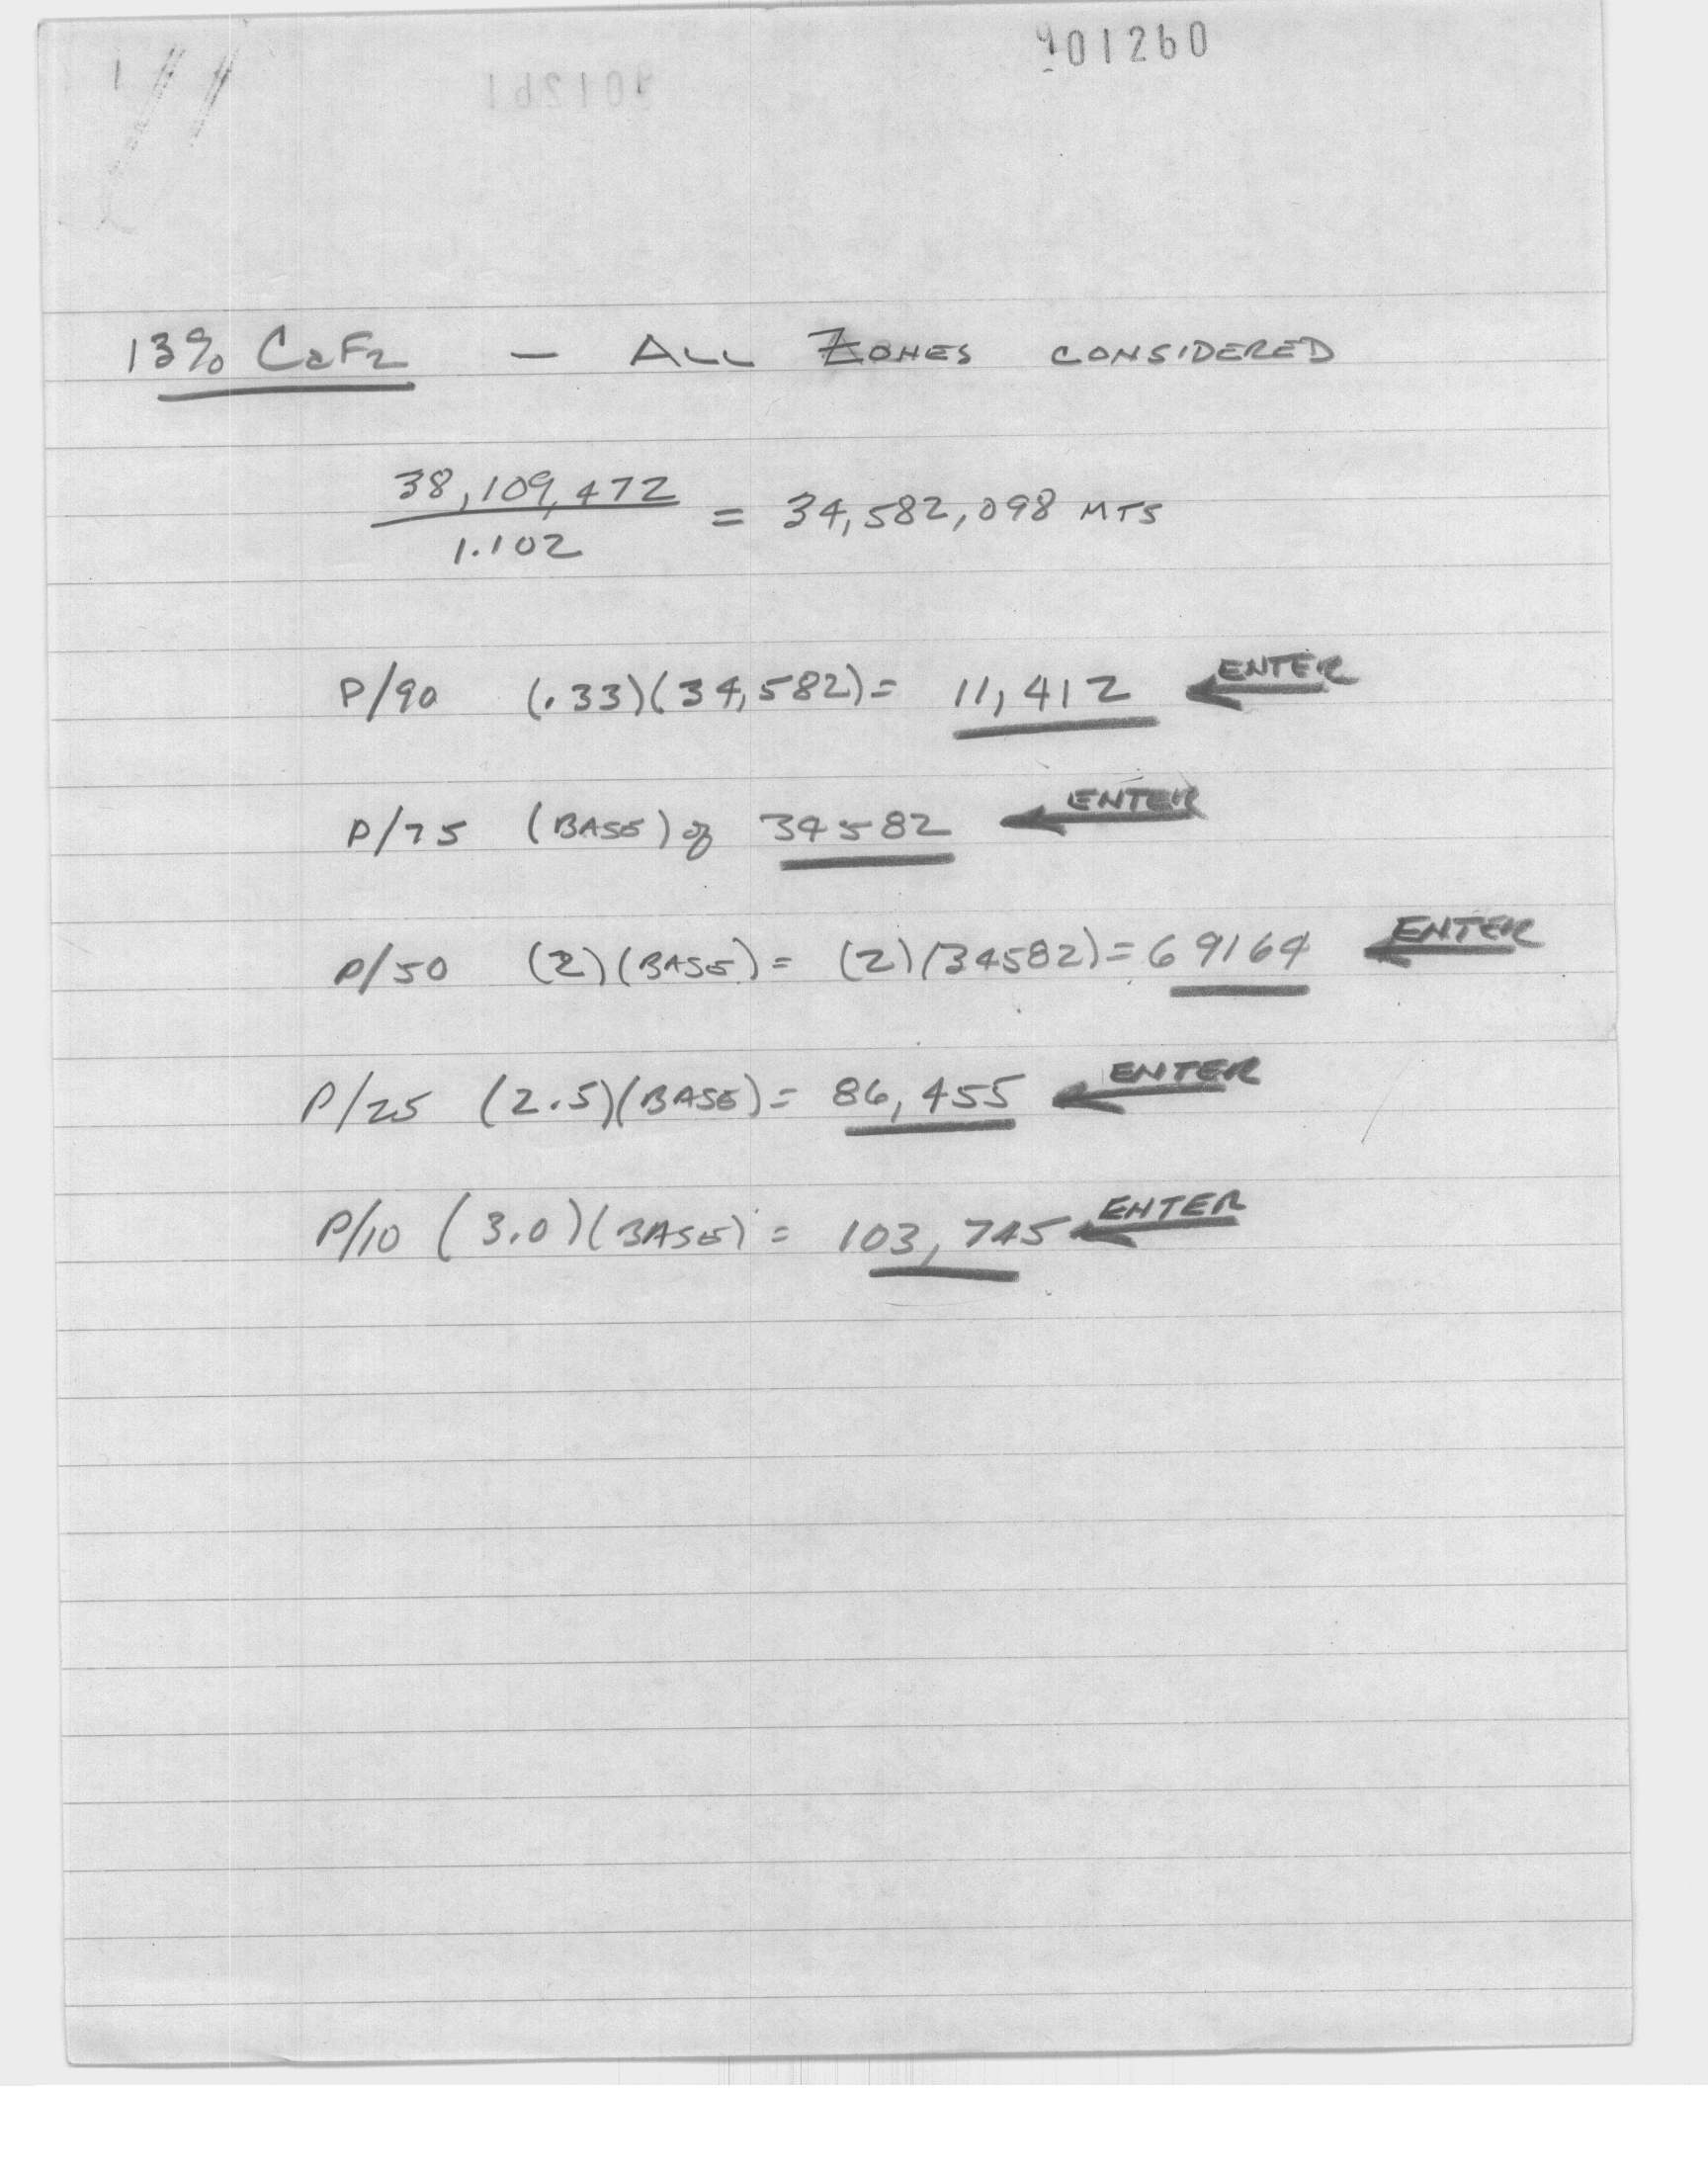 901260
901261
13% CaF2 — ALL ZONES CONSIDERED
38,109,472
1.102
= 34,582,098 MTS
P/90 (.33)(34,582)= 11,412 ENTER
P/75 (BASE) of 34582 ENTER
P/50 (2)(BASE)= (2)(34582)=69164 ENTER
P/25 (2.5)(BASE)= 86,455 ENTER
P/10 (3.0)(BASE) = 103,745 ENTER